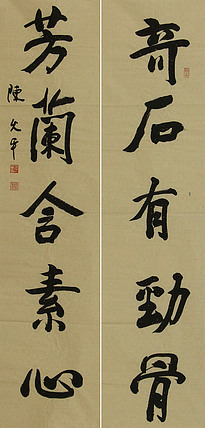 奇石有勁骨
芳蘭含素心
陳先平